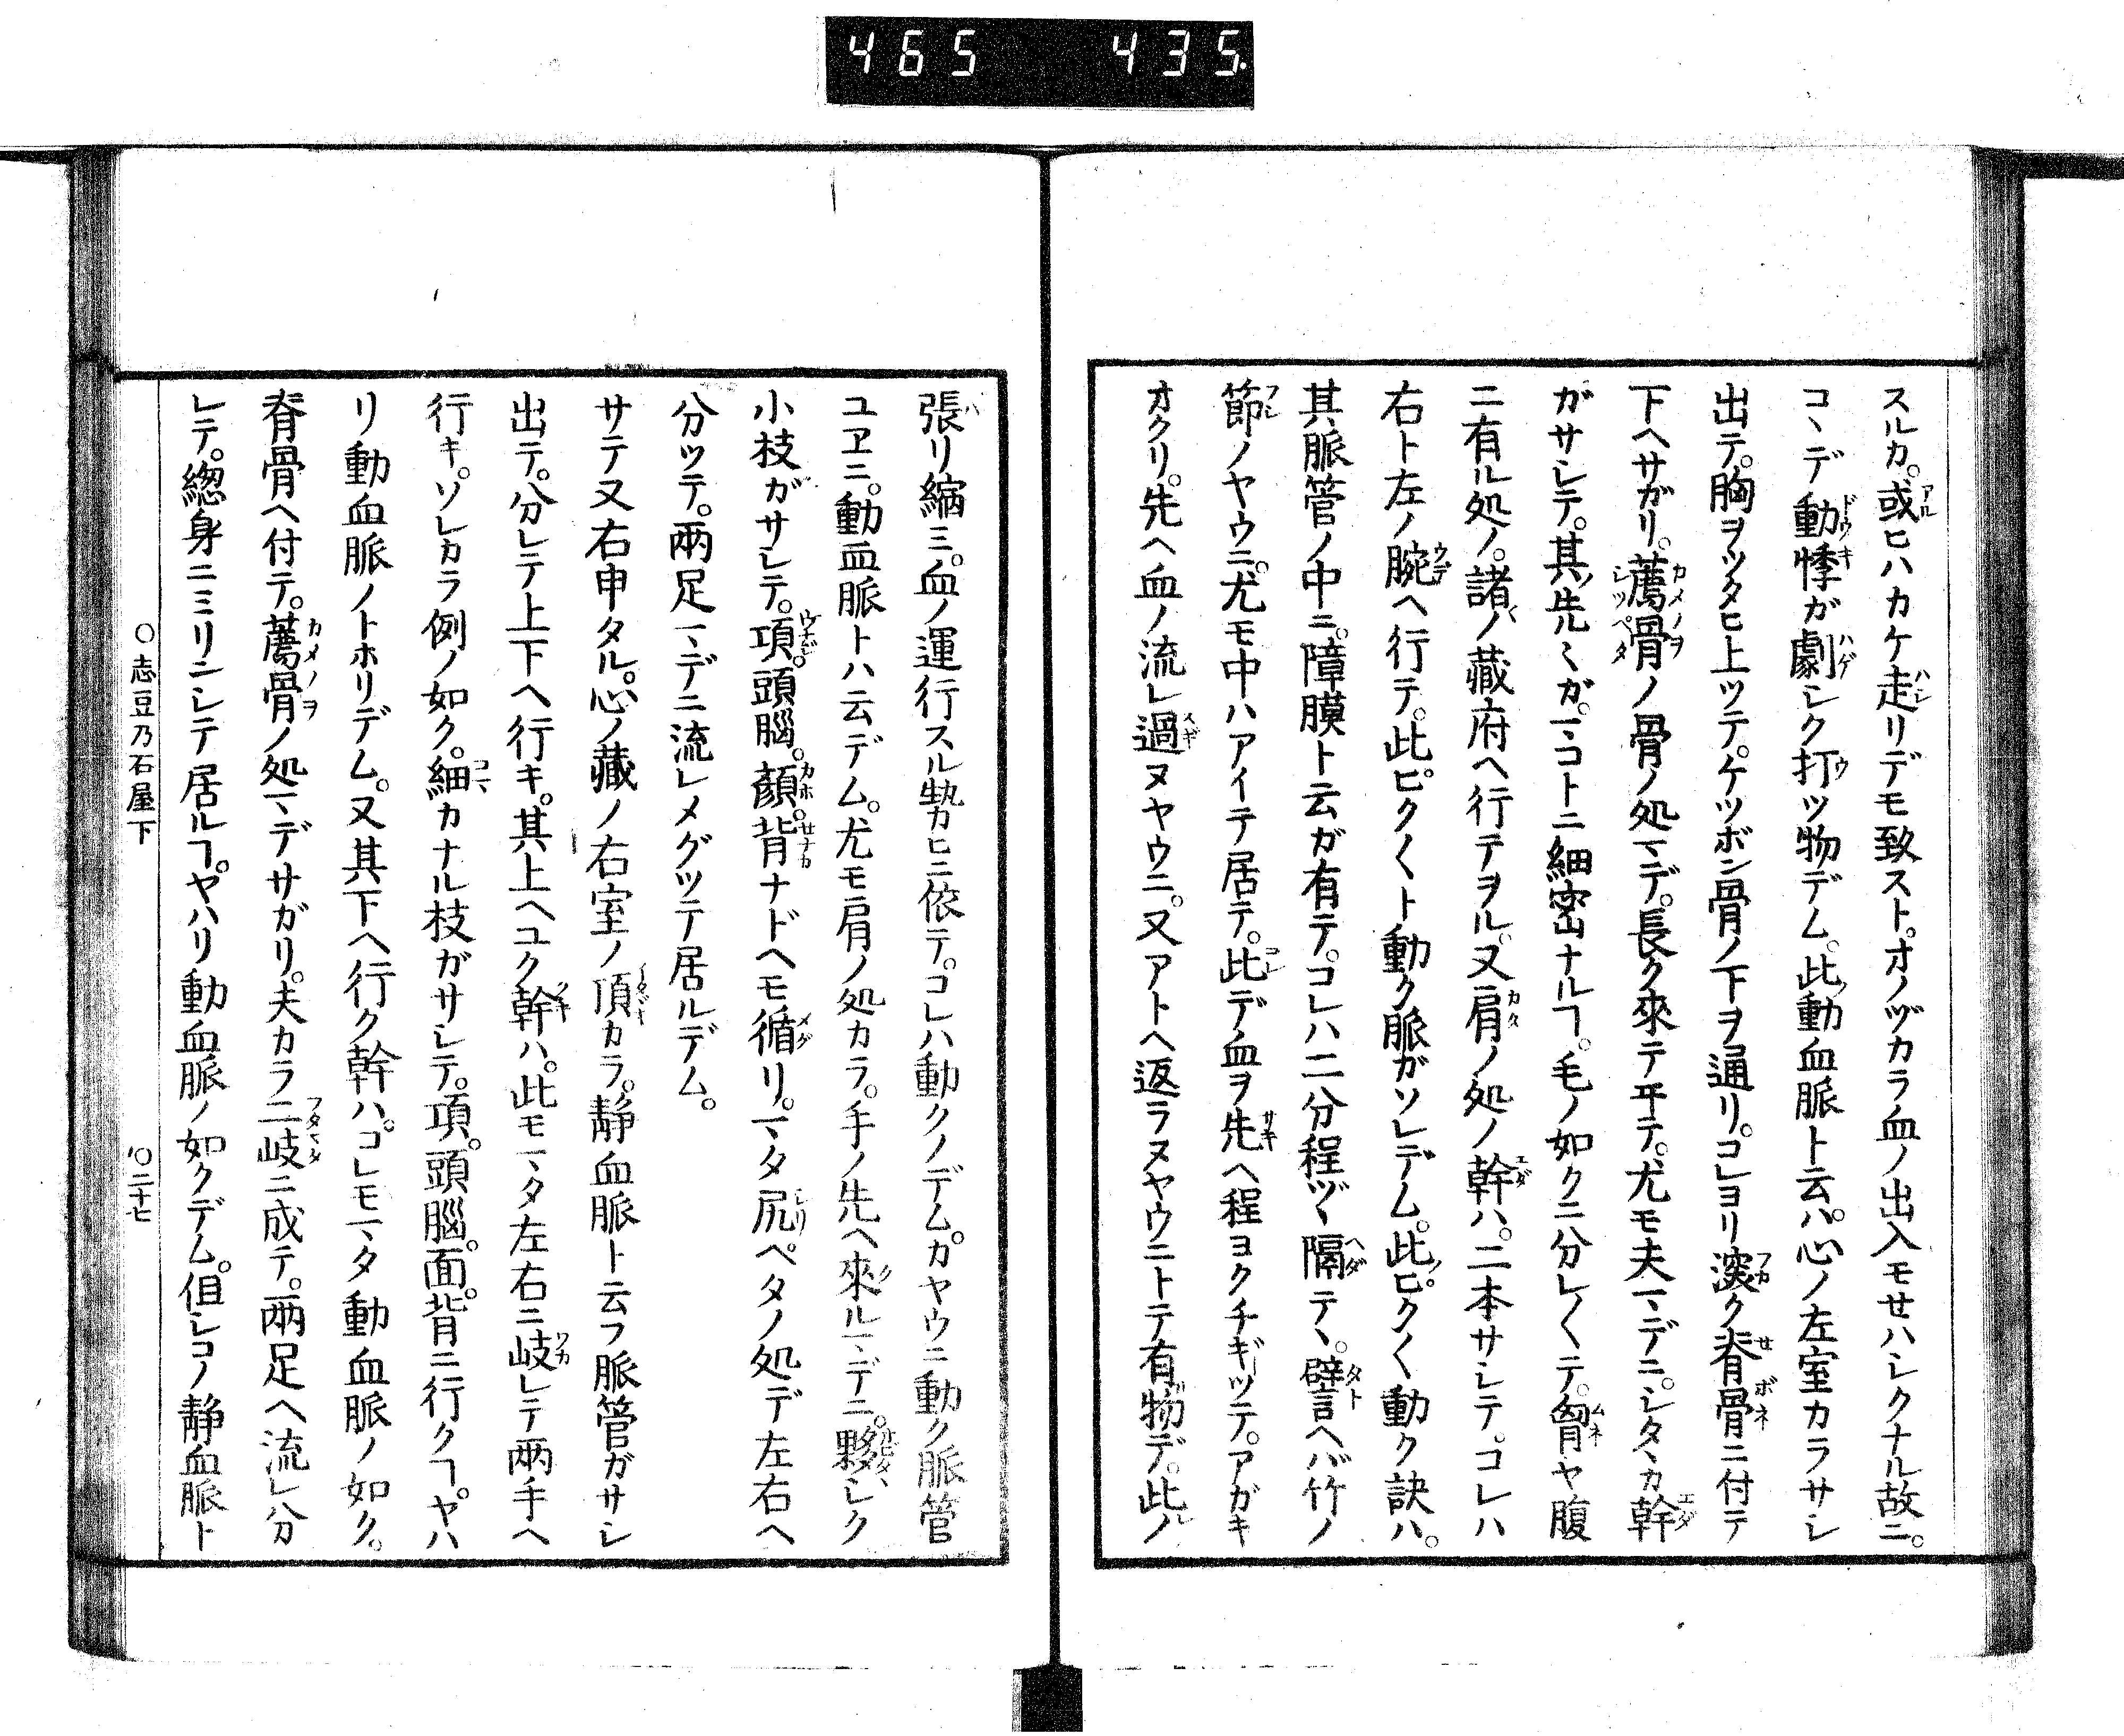 465 435
スルカ。或ヒハカケ走リデモ致スト。オノヅカラ血ノ出入モせハシクナル故ニ。
コヽデ動悸ガ劇シク打ツ物デム。此動血脈ト云ハ。心ノ左室カラサシ
出テ。胸ヲツタヒ上ツテ。ケツボン骨ノ下ヲ通リ。コレヨリ深ク脊骨ニ付テ
下ヘサガリ。䕥骨ノ骨ノ処マデ。長ク來テ㐂テ。尤モ夫マデニ。シタヽカ幹
ガサシテ。其先〻ガ。マコトニ細密ナルヿ。毛ノ如クニ分レ〱テ。胷ヤ腹
ニ有ル処ノ。諸ノ藏府ヘ行テヲル。又肩ノ処ノ幹ハ。二本サシテ。コレハ
右ト左ノ腕ヘ行テ。此ピク〱ト動ク脈ガソレデム。此ピク〱動ク訣ハ。
其脈管ノ中ニ。障膜ト云ガ有テ。コレハ二分程ヅヽ隔テヽ。譬言ヘバ竹ノ
節ノヤウニ。尤モ中ハアイテ居テ。此デ血ヲ先ヘ程ヨクチギツテ。アガキ
オクリ。先ヘ血ノ流レ過ヌヤウニ。又アトヘ返ラヌヤウニトテ有物デ。此ノ
張リ縮ミ。血ノ運行スル勢カヒニ依テ。コレハ動クノデム。カヤウニ動ク脈管
ユヱニ。動血脈トハ云デム。尤モ肩ノ処カラ。手ノ先ヘ來ルマデニ。夥シク
小枝ガサシテ。項。頭腦。顏。背ナドヘモ循リ。マタ尻ペタノ処デ左右ヘ
分ツテ。兩足マデニ流レメグツテ居ルデム。
サテ又右申タル。心ノ藏ノ右室ノ頂カラ。靜血脈ト云フ脈管ガサシ
出テ。分レテ上下ヘ行キ。其上ヘユク幹ハ。此モマタ左右ニ岐レテ兩手ヘ
行キ。ソレカラ例ノ如ク。細カナル枝ガサシテ。項。頭腦。面。背ニ行クヿ。ヤハ
リ動血脈ノトホリデム。又其下ヘ行ク幹ハ。コレモマタ動血脈ノ如ク。
脊骨ヘ付テ。䕥骨ノ処マデサガリ。夫カラ二岐ニ成テ。兩足ヘ流レ分
レテ。總身ニミリンシテ居ルヿ。ヤハリ動血脈ノ如クデム。但シコノ靜血脈ト
○志豆乃石屋下 ○二十七